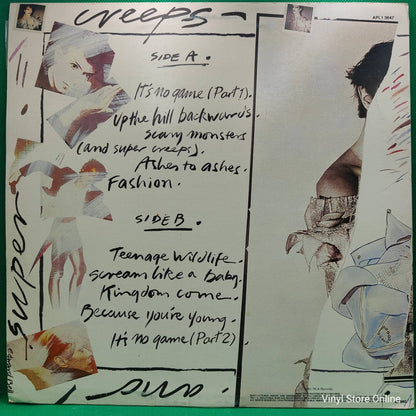 creeps
APL1 3647
SIDE A.
It's no game (Part 1).
Up the hill backwards.
Scary monsters
(and super creeps).
Ashes to ashes.
Fashion.
SIDE B.
Teenage Wildlife.
Scream like a baby.
Kingdom come.
Because you're young.
It's no game (Part 2).
super
and
Vinyl Store Online